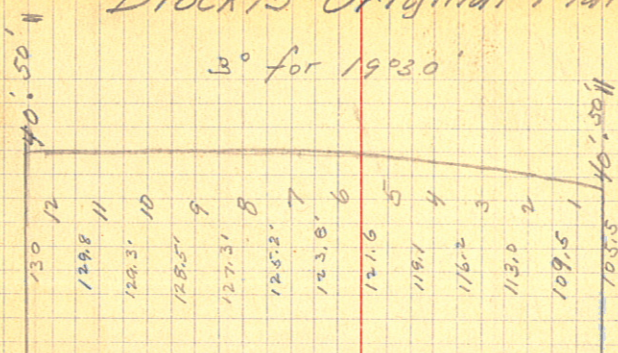 Block 13 Original Plat
3° for 19°30'
40'.50'
40'.50'
12 11 10 9 8 7 6 5 4 3 2 1
130 129.8 129.3' 128.5' 127.3' 125.8' 123.8' 121.6 119.1 116.2 113.0 109.5 105.5